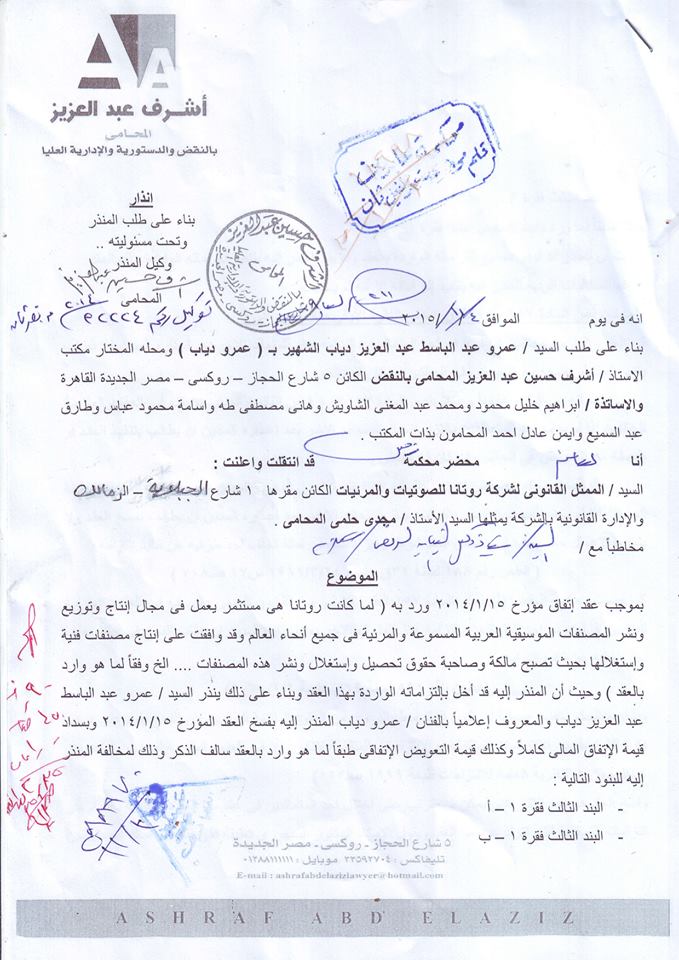 أشرف عبد العزيز
المحامى
بالنقض والدستورية والإدارية العليا
انذار
بناء على طلب المنذر
وتحت مسئوليته ..
وكيل المنذر
المحامى
انه فى يوم الموافق / /٢٠١٥
بناء على طلب السيد / عمرو عبد الباسط عبد العزيز دياب الشهير بـ ( عمرو دياب ) ومحله المختار مكتب
الاستاذ / أشرف حسين عبد العزيز المحامى بالنقض الكائن ٥ شارع الحجاز – روكسى – مصر الجديدة القاهرة
والاساتذة / ابراهيم خليل محمود ومحمد عبد المغنى الشاويش وهانى مصطفى طه واسامة محمود عباس وطارق
عبد السميع وايمن عادل احمد المحامون بذات المكتب .
أنا محضر محكمة قد انتقلت واعلنت :
السيد / الممثل القانونى لشركة روتانا للصوتيات والمرئيات الكائن مقرها ١ شارع الجبلاية – الزمالك
والإدارة القانونية بالشركة يمثلها السيد الأستاذ / مجدى حلمى المحامى .
مخاطباً مع /
الموضوع
بموجب عقد إتفاق مؤرخ ٢٠١٤/١/١٥ ورد به ( لما كانت روتانا هى مستثمر يعمل فى مجال إنتاج وتوزيع
ونشر المصنفات الموسيقية العربية المسموعة والمرئية فى جميع أنحاء العالم وقد وافقت على إنتاج مصنفات فنية
وإستغلالها بحيث تصبح مالكة وصاحبة حقوق تحصيل وإستغلال ونشر هذه المصنفات .... الخ وفقاً لما هو وارد
بالعقد ) وحيث أن المنذر إليه قد أخل بإلتزاماته الواردة بهذا العقد وبناء على ذلك ينذر السيد / عمرو عبد الباسط
عبد العزيز دياب والمعروف إعلامياً بالفنان / عمرو دياب المنذر إليه بفسخ العقد المؤرخ ٢٠١٤/١/١٥ وبسداد
قيمة الإتفاق المالى كاملاً وكذلك قيمة التعويض الإتفاقى طبقاً لما هو وارد بالعقد سالف الذكر وذلك لمخالفة المنذر
إليه للبنود التالية :
- البند الثالث فقرة ١ – أ
- البند الثالث فقرة ١ – ب
٥ شارع الحجاز - روكسى - مصر الجديدة
تليفاكس : ٢٢٥٩٢٧٠٤ موبايل : ٠١٢٨٨١١١١١١
E-mail : ashrafabdelazizlawyer@hotmail.com
ASHRAF ABD ELAZIZ